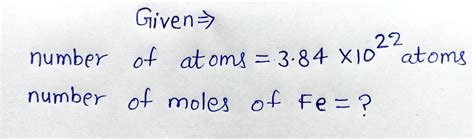 Given⇒
number of atoms = 3.84 ×10²² atoms
number of moles of Fe = ?